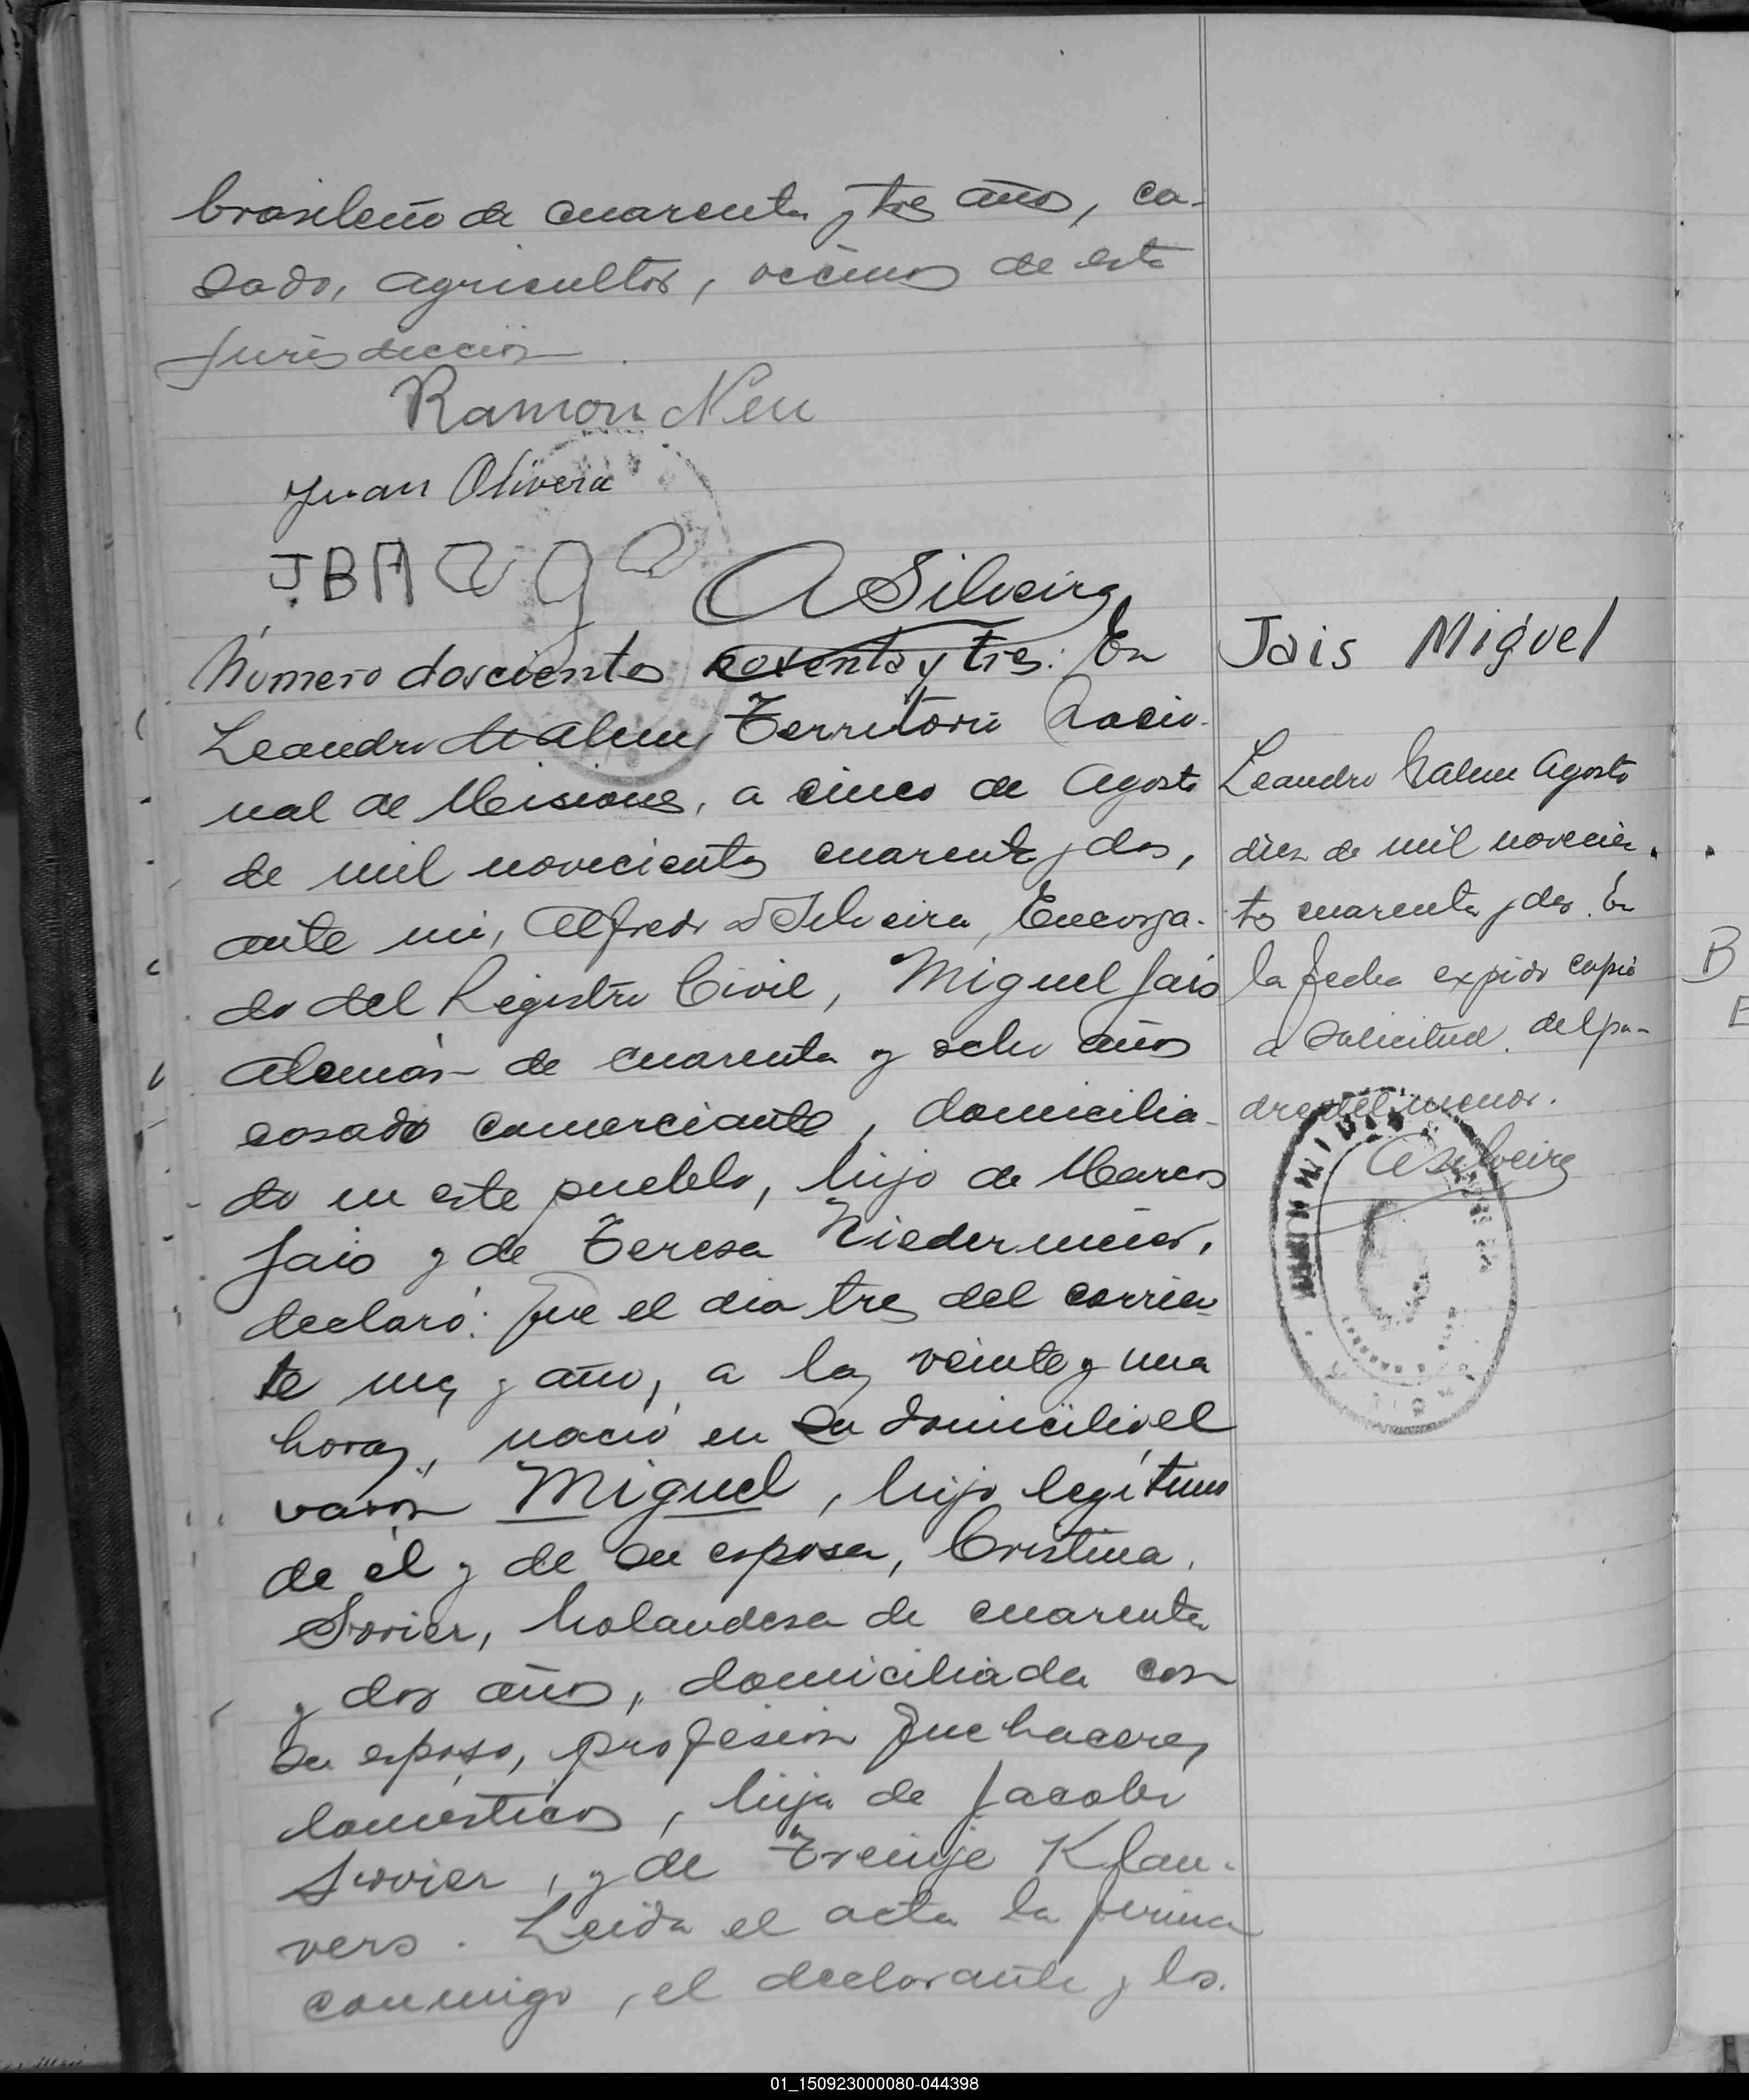 brasileño de cuarenta y tres años, ca-
sado, agricultor, vecinos de esta
jurisdicción
Ramon Neu
Juan Olivera
J B A
A Silveira
Número doscientos sesenta y tres: En
Leandro N Alem, Territorio Nacio-
nal de Misiones, a cinco de Agosto
de mil novecientos cuarenta y dos,
ante mí, Alfredo D Silveira, Encarga-
do del Registro Civil, Miguel Jais
Alemán de cuarenta y ocho años
casado comerciante, domicilia-
do en este pueblo, hijo de Marcos
Jais y de Teresa
declaró: Que el día tres del corrien-
te mes y año, a las veinte y una
horas, nació en su domicilio el
varon Miguel, hijo legítimo
de él y de su esposa, Cristina,
holandesa de cuarenta
y dos años, domiciliada con
su esposo, profesion Quehaceres
domésticos, hija de Jacobo
y de Treinje Klau-
vers. Leída el acta la firma
conmigo, el declarante y los
Jais Miguel
Leandro N Alem Agosto
diez de mil novecien-
tos cuarenta y dos. En
la fecha expido copia
a solicitud del pa-
dre del menor.
A Silveira
B
E
01_150923000080-044398